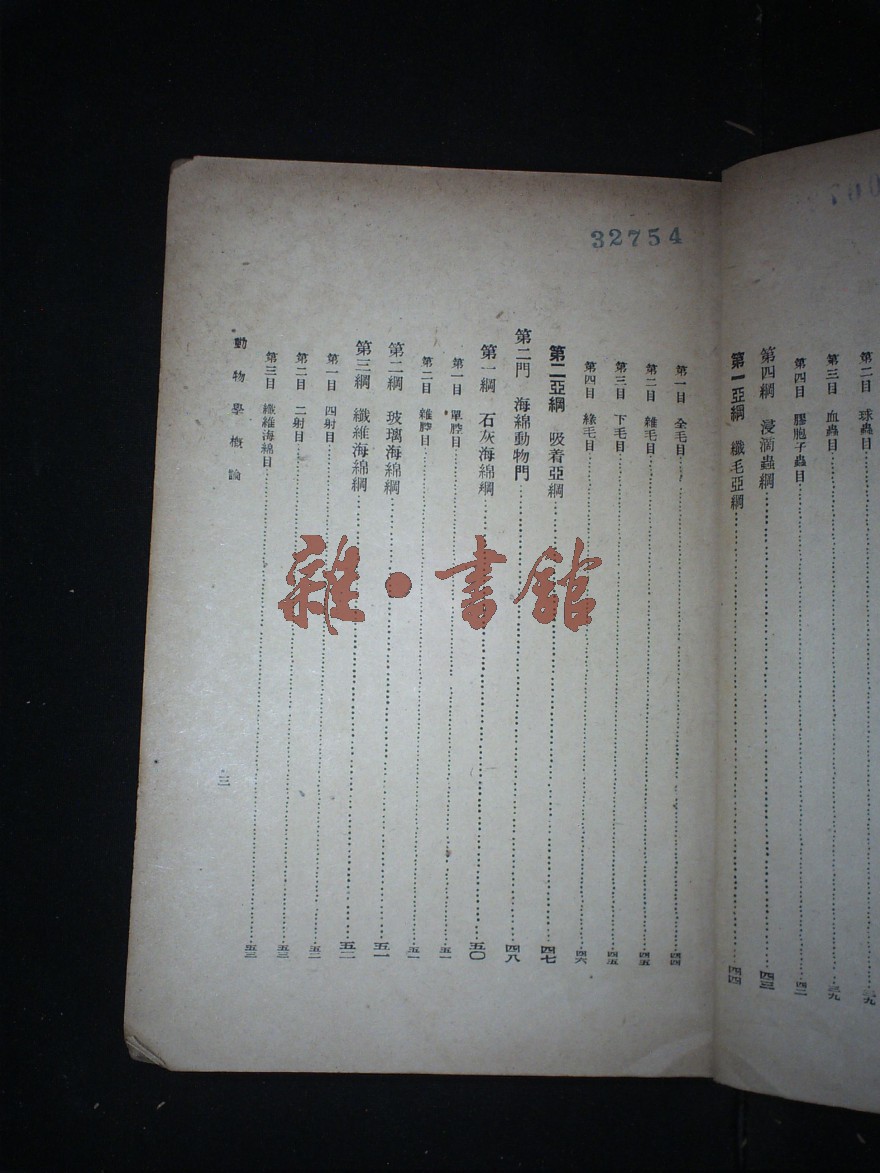 第二目 球蟲目 三九
第三目 血蟲目 三九
第四目 膠胞子蟲目 四二
第四綱 浸滴蟲綱 四三
第一亞綱 纖毛亞綱 四四
32754
第一目 全毛目 四四
第二目 雜毛目 四五
第三目 下毛目 四五
第四目 緣毛目 四六
第二亞綱 吸着亞綱 四七
第二門 海綿動物門 四八
第一綱 石灰海綿綱 五〇
第一目 單腔目 五一
第二目 雜腔目 五一
第二綱 玻璃海綿綱 五一
第三綱 纖維海綿綱 五二
第一目 四射目 五二
第二目 二射目 五三
第三目 纖維海綿目 五三
動物學概論
三
雜·書館